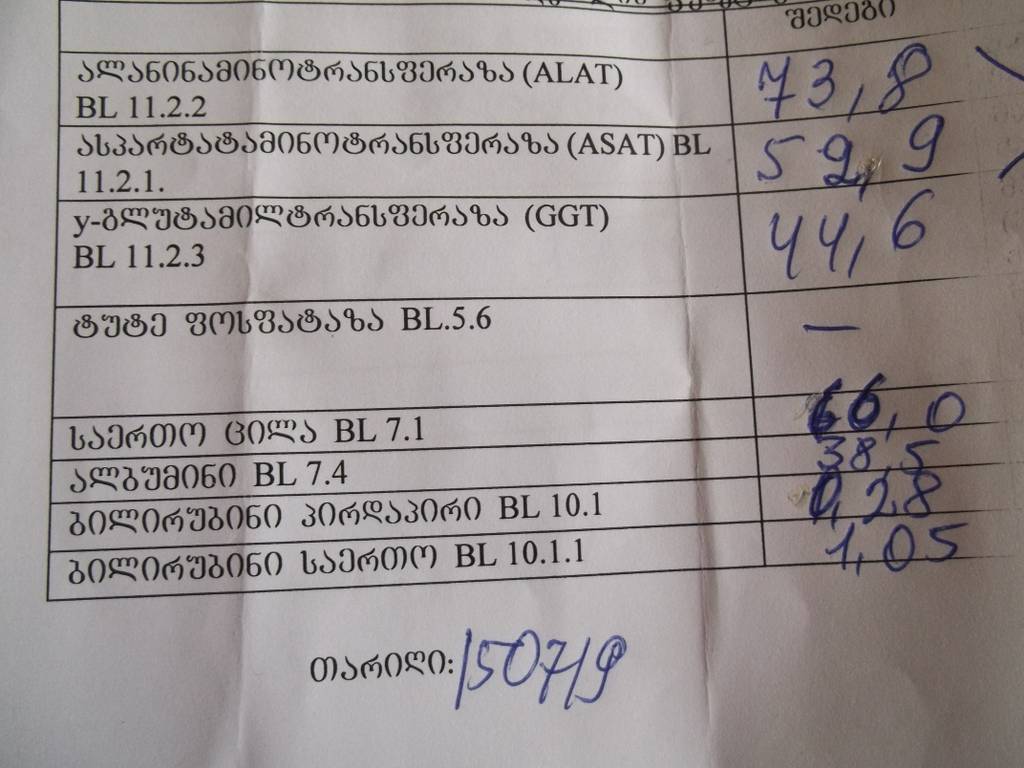 შედეგი
ალანინამინოტრანსფერაზა (ALAT) 73,8
BL 11.2.2
ასპარტატამინოტრანსფერაზა (ASAT) BL 59,9
11.2.1.
y-გლუტამილტრანსფერაზა (GGT) 44,6
BL 11.2.3
ტუტე ფოსფატაზა BL.5.6 —
საერთო ცილა BL 7.1 66,0
ალბუმინი BL 7.4 38,5
ბილირუბინი პირდაპირი BL 10.1 0,28
ბილირუბინი საერთო BL 10.1.1 1,05
თარიღი: 150719